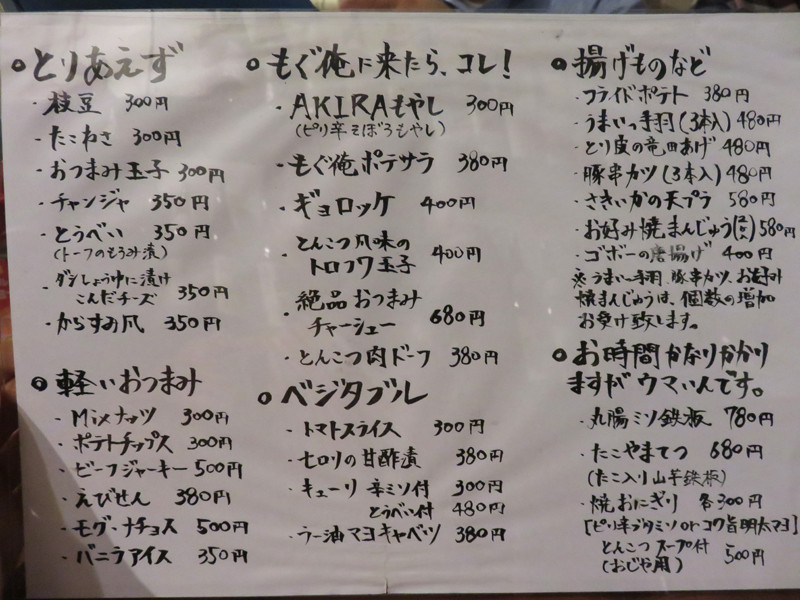 ○とりあえず
・枝豆 300円
・たこねさ 300円
・おつまみ玉子 300円
・チャンジャ 350円
・とうべい 350円
(トーフのもろみ漬)
・ダシしょうゆに漬け
こんだチーズ 350円
・からすみ爪 350円
○軽いおつまみ
・Mixナッツ 300円
・ポテトチップス 300円
・ビーフジャーキー 500円
・えびせん 380円
・モグ・ナチョス 500円
・バニラアイス 350円
○もぐ俺に来たら、コレ!
・AKIRAもやし 300円
(ピリ辛そぼろもやし)
・もぐ俺ポテサラ 380円
・ギョロッケ 400円
・とんこつ風味の
トロフワ玉子 400円
・絶品おつまみ
チャーシュー 680円
・とんこつ肉ドーフ 380円
○ベジタブル
・トマトスライス 300円
・セロリの甘酢漬 380円
・キューリ 辛ミソ付 300円
とうべい付 480円
・ラー油マヨキャベツ 380円
○揚げものなど
・フライドポテト 380円
・うまいっ手羽(3本入) 480円
・とり皮の竜田あげ 480円
・豚串カツ(3本入) 480円
・さきいかの天プラ 580円
・お好み焼まんじゅう 580円
・ゴボーの唐揚げ 400円
※うまいっ手羽、豚串カツ、お好み
焼まんじゅうは、個数の増加
お受け致します。
○お時間かなりかかり
ますがウマいんです。
・丸腸ミソ鉄板 780円
・たこやまてつ 680円
(たこ入り山芋鉄板)
・焼おにぎり 各300円
[ピリ辛ブタミソorコク旨明太マヨ]
とんこつスープ付 500円
(おじや用)